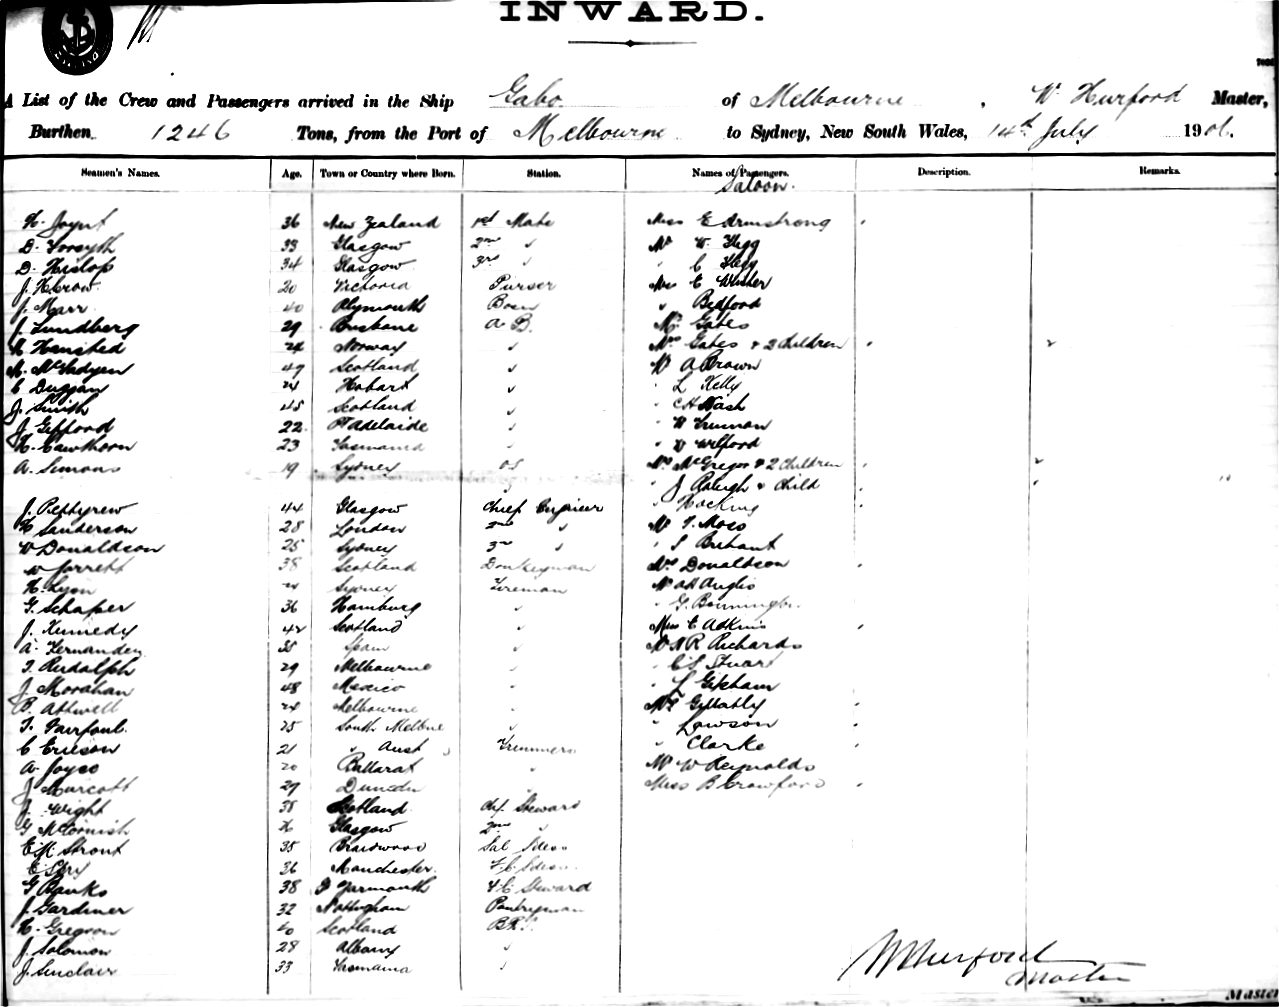 INWARD.
A List of the Crew and Passengers arrived in the Ship Gabo of Melbourne, W. Hurford Master,
Burthen 1246 Tons, from the Port of Melbourne to Sydney, New South Wales, 14th July 1906.
Seamen's Names. Age. Town or Country where Born. Station. Names of Passengers. Description. Remarks.
Saloon.
H. Joynt 36 New Zealand 1st Mate Miss E Armstrong
D. Forsyth 33 Glasgow 2nd " Mr W. Fegg
D. Hislop 34 Glasgow 3rd " " C Fegg
J. 20 Victoria Purser Miss E
J. Marr 40 Plymouth Bosn " Bedford
J. Lundberg 29 Brisbane A B. Mr Gates
Hansted 24 Norway " Mrs Gates & 2 Children
M. McFadyen 49 Scotland " Mr A Brown
C Duggan Hobart " " L Kelly
J. Smith 45 Scotland " " C H Nash
J. Gifford 22 Pt Adelaide " " W Truman
H. Cawthorn 23 Tasmania " " W Welford
A. Simons 19 Sydney OS Mrs McGregor & 2 Children
" J Raleigh & Child
J. Pettyrew 44 Glasgow Chief Engineer " Hocking
H Sanderson 28 London 2nd " Mr T. Moss
W Donaldson 25 Sydney 3rd " " S
W Jarrett 38 Scotland Donkeyman Mrs Donaldson
H. Lyon Sydney Fireman Mr A H Anglis
G. Schaper 36 Hamburg " " G. Bonnington
J. Kennedy 42 Scotland " Miss E Adkins
A. Fernandez 35 Spain " Mr H R Richards
T. Rudolph 29 Melbourne " " C S Stuart
J Morahan 48 Mexico " " L
B. Attwell 24 Melbourne " Mrs Gellatly
T. Fairfoul 25 South Melbne " " Lawson
C Ericson 21 " Aust " Trimmers " Clarke
A. Joyce 20 Ballarat " Mr W Reynolds
J Murcott 29 Dunedin " Miss B Crawford
J. Wight 38 Scotland Chf. Steward
G McCornish Glasgow 2nd "
E. M. Strout 35 Braidwood Sal Stdess
E Spry 36 Manchester F.C. Stdess
G Banks 38 G Yarmouth F.C Steward
J. Gardiner 32 Nottingham Pantryman
H. Gregson 20 Scotland B.R.S.
J. Solomon 28 Albany "
J. Sinclair 33 Tasmania "
W Hurford
Master
Master